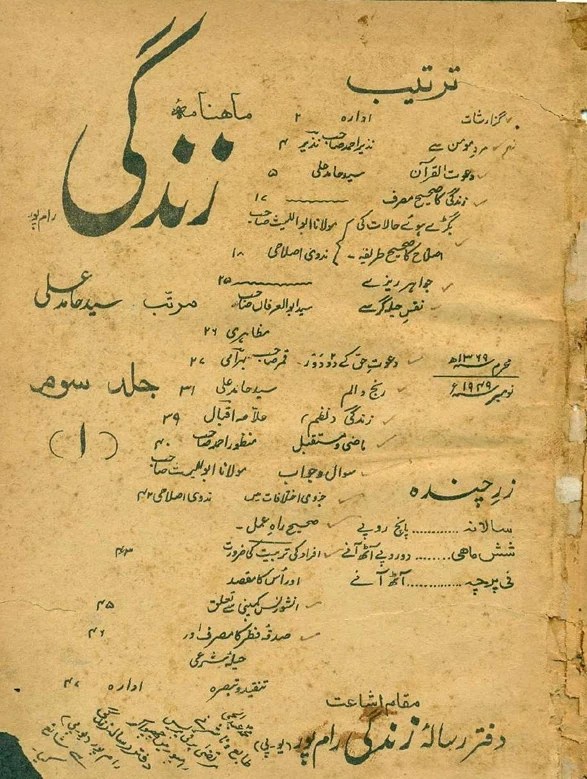 ماہنامہ
زندگی
رام پور
مرتب سید حامد علی
محرم ۱۳۶۹ھ
نومبر ۱۹۴۹ء
جلد سوم
(۱)
ترتیب
گزارشات ادارہ ۲
مرد مومن سے نذیر احمد صاحب نذیر ۴
دعوت القرآن سید حامد علی ۵
زندگی کا صحیح مصرف ۱۷
بگڑے ہوئے حالات کی مولانا ابواللیث صاحب
اصلاح کا صحیح طریقہ ندوی اصلاحی ۱۸
جواہر ریزے ۲۵
نفس حیلہ گر سے سید ابوالعرفان صاحب
مظاہری ۲۶
دعوت حق کے دو دور قمر صاحب بہرامی ۲۷
رنج و الم سید حامد علی ۳۱
زندگی (نظم) علامہ اقبال ۳۹
ماضی و مستقبل منظور احمد صاحب ۴۰
سوال و جواب مولانا ابواللیث صاحب
جزوی اختلافات میں ندوی اصلاحی ۴۲
صحیح راہ عمل۔
افراد کی تربیت کی ضرورت ۴۳
اور اُس کا مقصد
انشورنس کمپنی سے تعلق ۴۵
صدقہ فطر کا مصرف اور ۴۶
حیلۂ شرعی
تنقید و تبصرہ ادارہ ۴۷
زرِ چندہ
سالانہ ........... پانچ روپے
شش ماہی ........ دو روپے آٹھ آنے
فی پرچہ ............ آٹھ آنے
مقام اشاعت
دفتر رسالۂ زندگی رام پور (یو۔پی)
دفتر رسالہ زندگی
رام پور (یو۔پی)